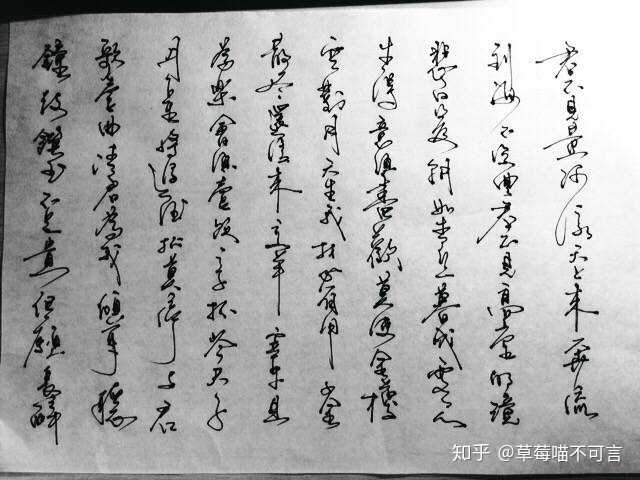 君不見黃河之水天上来奔流
到海不復回君不見高堂明鏡
悲白髮朝如青絲暮成雪人
生得意須盡歡莫使金樽
空對月天生我材必有用千金
散盡還復来烹羊宰牛且
為樂會須壹飲三百杯岑夫子
丹丘生將進酒杯莫停與君
歌壹曲請君為我傾耳聽
鐘鼓饌玉不足貴但願長醉
知乎 @草莓喵不可言